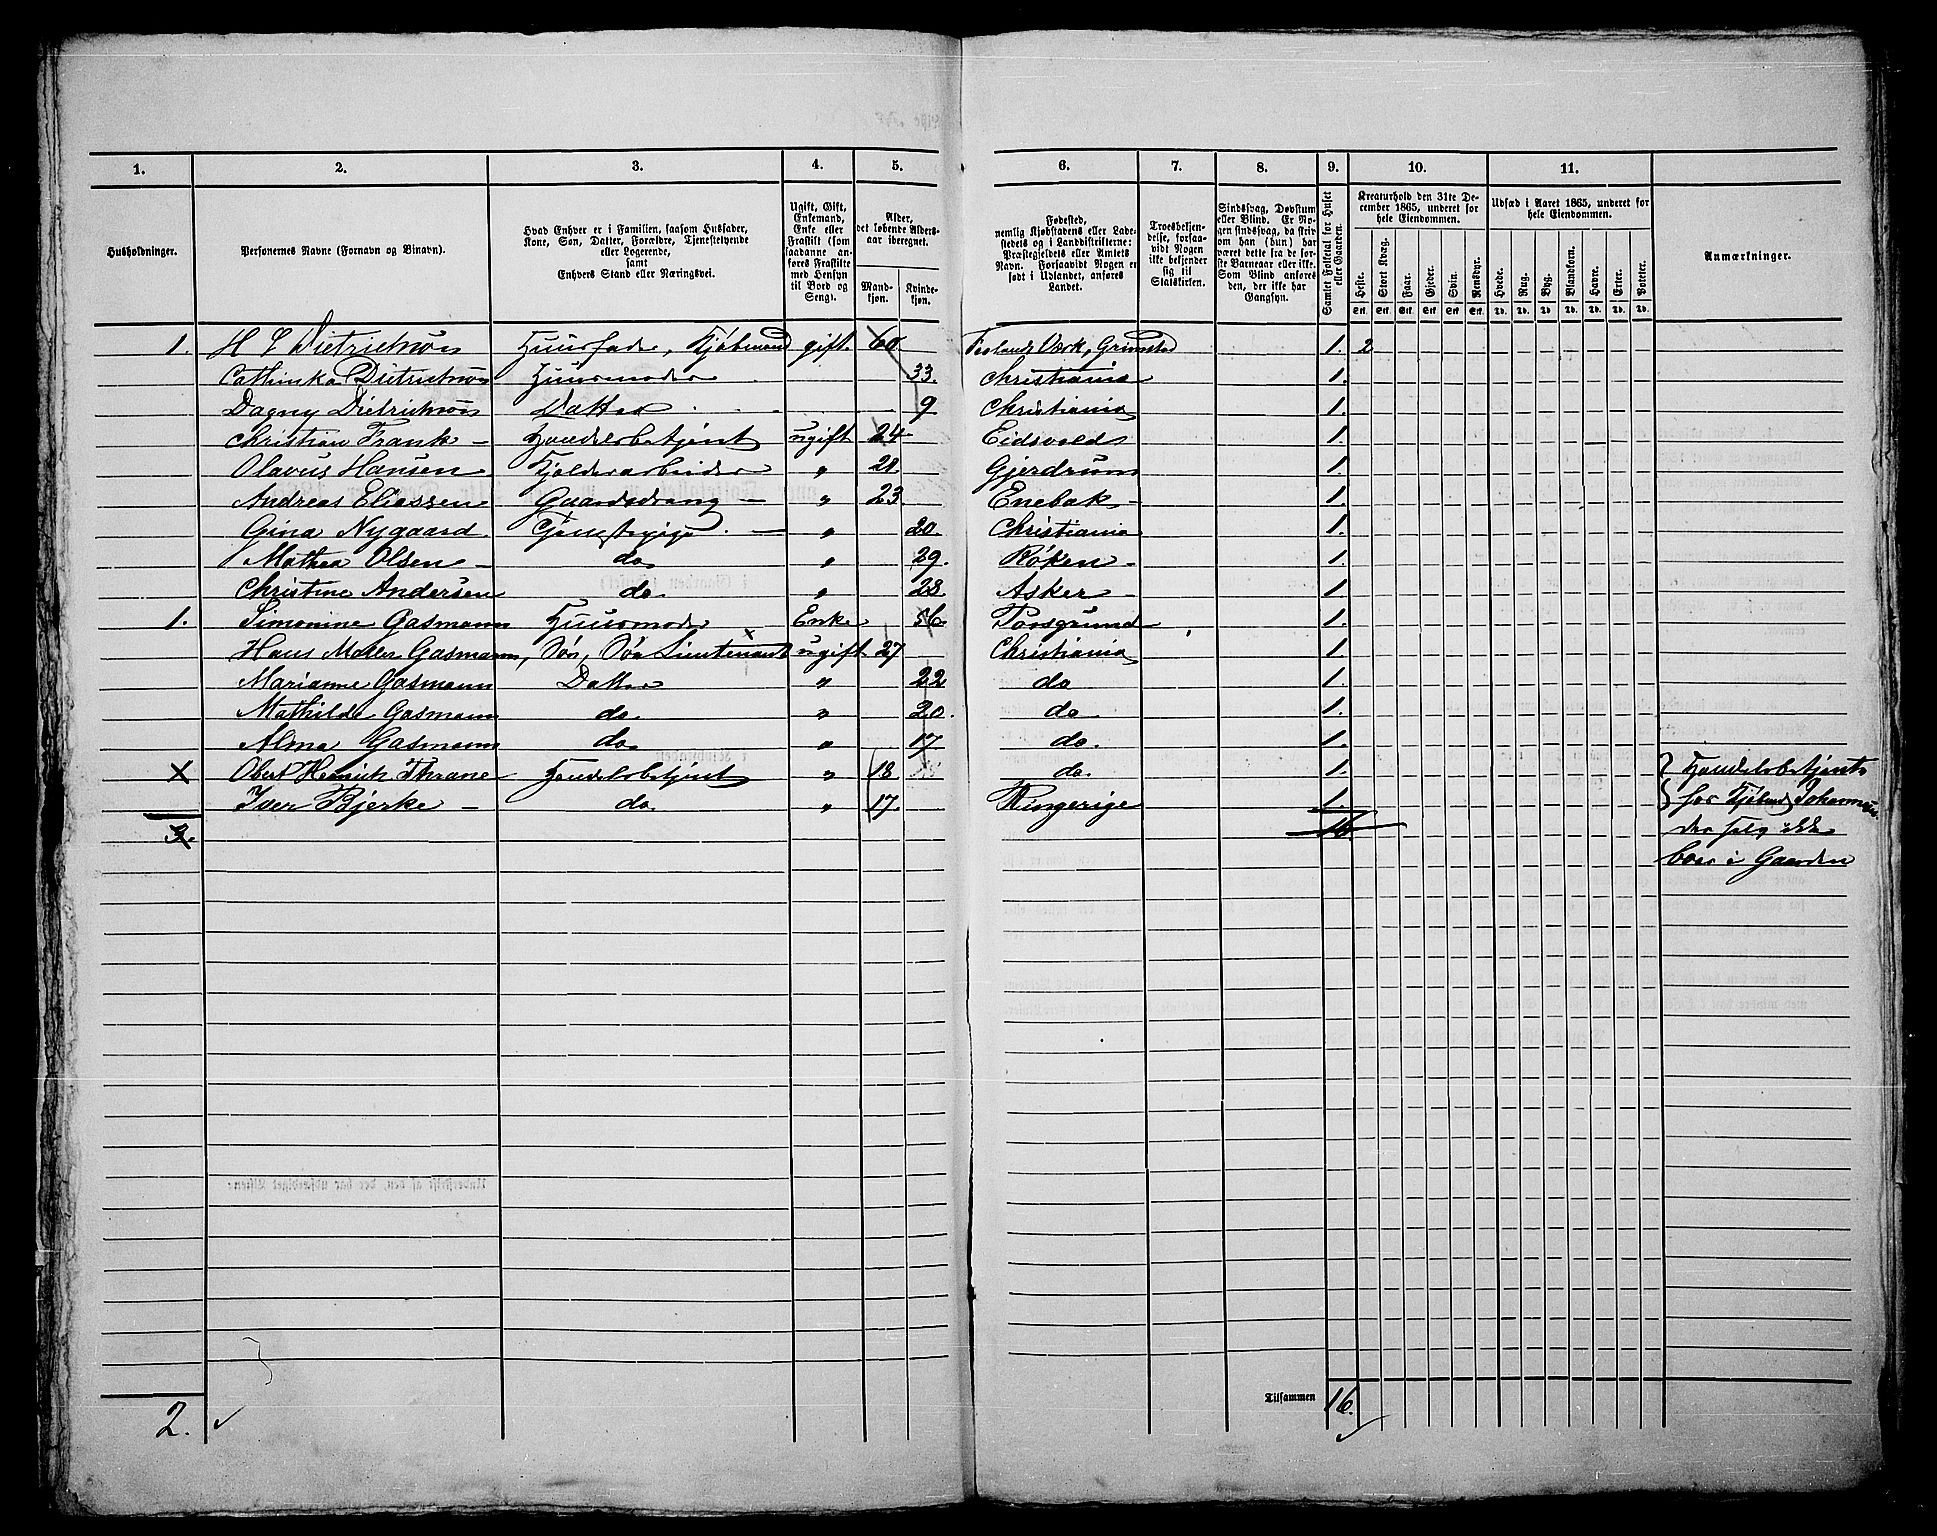 1. 2. 3. 4. 5. 6. 7. 8. 9. 10. 11.
Husholdninger.
Personernes Navne (Fornavn og Binavn).
Hvad Enhver er i Familien, saasom Husfader,
Kone, Søn, Datter, Forældre, Tjenestetyende
eller Logerende,
samt
Enhvers Stand eller Næringsvei.
Ugift, Gift,
Enkemand,
Enke eller
Fraskilt (som
saadanne an-
føres Fraskilte
med Hensyn
til Bord og
Seng).
Alder,
det løbende Alders-
aar iberegnet.
Mand-
kjøn.
Kvinde-
kjøn.
Fødested,
nemlig Kjøbstadens eller Lade-
stedets og i Landdistrikterne:
Præstegjeldets eller Amtets
Navn. Forsaavidt Nogen er
født i Udlandet, anføres
Landet.
Troesbekjen-
delse, forsaa-
vidt Nogen
ikke bekjender
sig til
Statskirken.
Sindssvag, Døvstum
eller Blind. Er No-
gen sindssvag, da skriv
om han (hun) har
været dette fra de før-
ste Barneaar eller ikke.
Som Blind anføres
den, der ikke har
Gangsyn.
Samlet Folketal for Huset
eller Gaarden.
Kreaturhold den 31te De-
cember 1865, underet for
hele Eiendommen.
Heste. Stort Kvæg. Faar. Gjeder. Svin. Rensdyr.
Stk. Stk. Stk. Stk. Stk. Stk.
Udsæd i Aaret 1865, underet for
hele Eiendommen.
Hvede. Rug. Byg. Blandkorn. Havre. Erter. Poteter.
Td. Td. Td. Td. Td. Td. Td.
Anmærkninger.
1. H C Dietrichson Huusfader, Kjøbmand gift 60. Grimstad 1. 2
Cathinka Dietrichson Huusmoder 33. Christiania 1.
Dagny Dietrichson Datter 9 Christiania 1.
Christian Frank - Handelsbetjent ugift 24 Eidsvold 1.
Olavus Hansen Kjelderarbeider " 21 Gjerdrum 1.
Andreas Eliassen Gaardsdreng - " 23. Enebak - 1.
Gina Nygaard Tjenestepige - " 20. Christiania 1.
Mathea Olsen - do " 29. Røken - 1.
Christine Andersen do " 28. Asker - 1.
1. Simonine Gasmann Huusmoder Enke 56. Porsgrund 1.
Hans Møller Gasmann, Søn, Søe Lieutenant x ugift 27 Christiania 1
Marianne Gasmann Datter " 22 do 1.
Mathilde Gasmann do " 20. do 1.
Alma Gasmann do " 17 do. 1.
X Obert Henrich Thrane Handelsbetjent " 18 do. 1. Handelsbetjente
Iver Bjerke - do. " 17. Ringerige 1. for Kjøbmd Johannesen
3. 16. der selv ikke
boer i Gaarden
Tilsammen 16.
2.